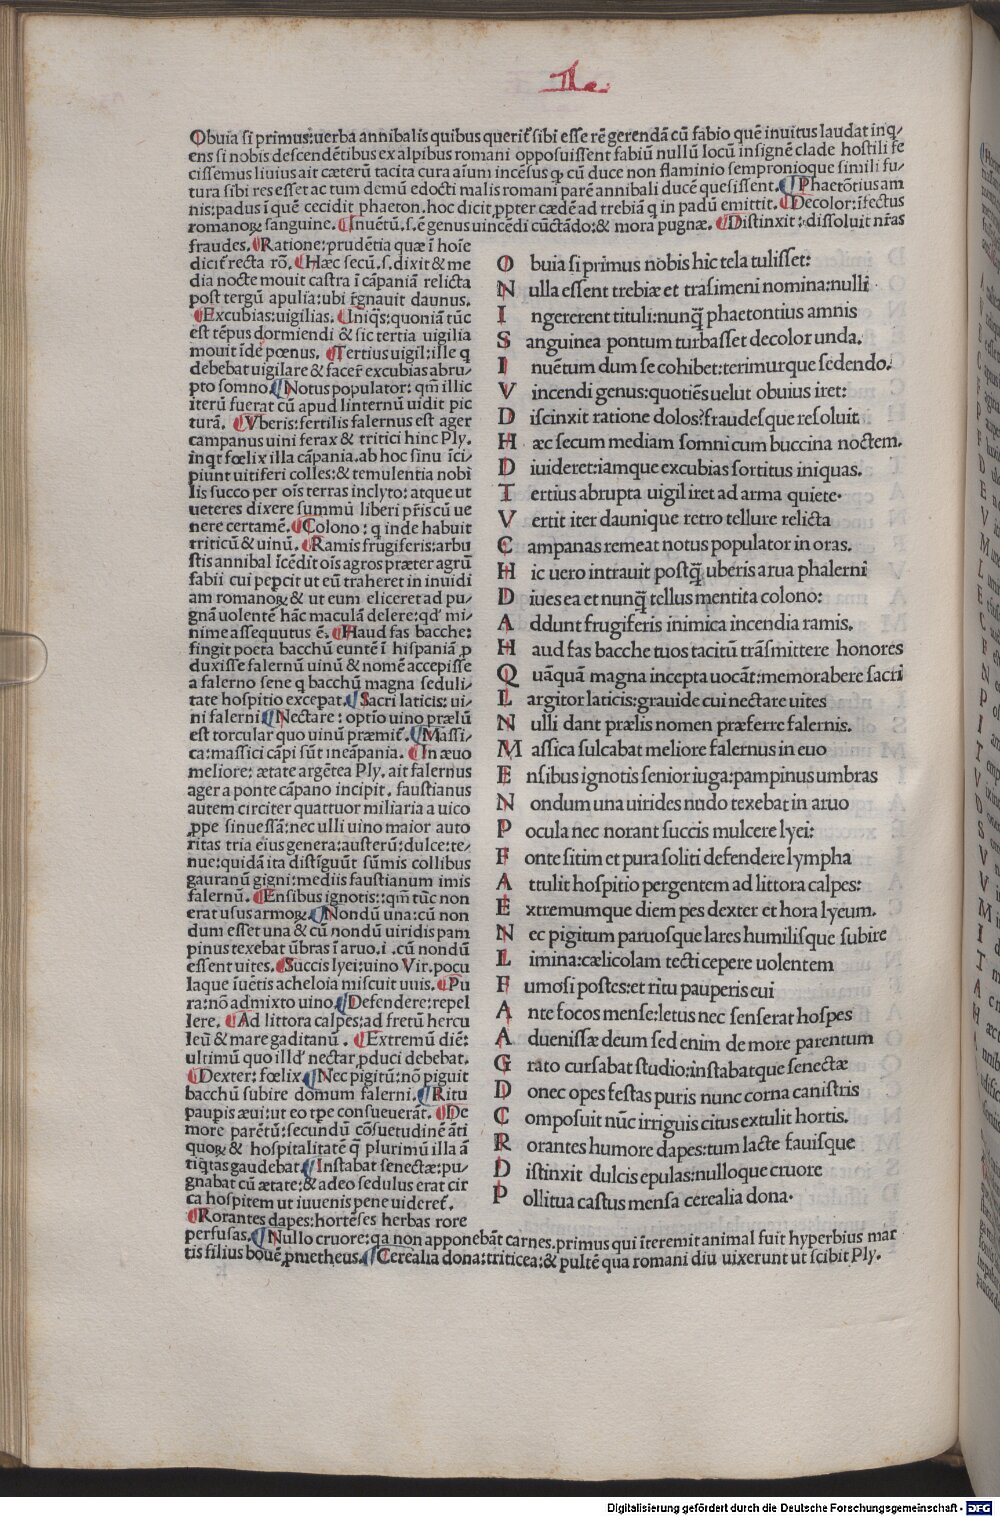 Obuia si primus:uerba annibalis quibus querit̃ sibi esse rē gerendā cū fabio quē inuitus laudat inq/
ens si nobis descendētibus ex alpibus romani opposuissent fabiū nullū locū insignē clade hostili fe
cissemus liuius ait cæterū tacita cura aīum incēsus ꝙ cū duce non flaminio sempronioque simili fu/
tura sibi res esset ac tum demū edocti malis romani parē annibali ducē quesissent. Phaerōtius am
nis:padus ī quē cecidit phaeton.hoc dicit ꝓpter cædē ad trebiā q in padū emittit. Decolor:īfectus
romanoꝝ sanguine. Inuētū.s.ē genus uincēdi cūctādo:& mora pugnæ. Distinxit:dissoluit nr̄as
fraudes. Ratione:prudētia quæ ī hoīe
dicit̃ recta rō. Hæc secū.s.dixit & me
dia nocte mouit castra ī cāpaniā relicta
post tergū apulia:ubi r̄gnauit daunus.
Excubias:uigilias. Iniqͣs:quoniā tūc
est tēpus dormiendi & sic tertia uigilia
mouit īde pœnus. Tertius uigil:ille q
debebat uigilare & facer̄ excubias abru/
pto somno. Notus populator:qm̄ illic
iterū fuerat cū apud linternū uidit pic
turā. Vberis:fertilis falernus est ager
campanus uini ferax & tritici hinc Ply.
inqt fœlix illa cāpania.ab hoc sinu īci/
piunt uitiferi colles:& temulentia nobi
lis succo per oīs terras inclyto:atque ut
ueteres dixere summū liberi pr̄is cū ue
nere certamē. Colono:q inde habuit
triticū & uinū. Ramis frugiferis:arbu
stis annibal īcēdit oīs agros præter agrū
fabii cui peꝑcit ut eū traheret in inuidi
am romanoꝝ & ut eum eliceret ad pu/
gnā uolentē hāc maculā delere:qd' mi/
nime assequutus ē. Haud fas bacche:
fingit poeta bacchū euntē ī hispaniā ꝑ
duxisse falernū uinū & nomē accepisse
a falerno sene q bacchū magna seduli/
tate hospitio excepat. Sacri laticis: ui/
ni falerni. Nectare:optio uino prælū
est torcular quo uinū præmit̃. Massi/
ca:massici cāpi sūt incāpania. In æuo
meliore:ætate argētea Ply.ait falernus
ager a ponte cāpano incipit.faustianus
autem circiter quattuor miliaria a uico
ꝓpe sinuessā:nec ulli uino maior auto
ritas tria eius genera:austerū:dulce:te/
nue:quidā ita distīguūt sūmis collibus
gauranū gigni:mediis faustianum imis
falernū. Ensibus ignotis:qm̄ tūc non
erat usus armoꝝ. Nondū una:cū non
dum esset una & cū nondū uiridis pam
pinus texebat ūbras ī aruo.i.cū nondū
essent uites. Succis lyei:uino Vir.pocu
laque īuētis acheloia miscuit uuis. Pu
ra:nō admixto uino. Defendere:repel
lere. Ad littora calpes:ad fretū hercu
leū & mare gaditanū. Extremū diē:
ultimū quo illd' nectar ꝓduci debebat.
Dexter:fœlix. Nec pigitū:nō piguit
bacchū subire domum falerni. Ritu
paupis æui:ut eo tꝑe consueuerāt. De
more parētū:secundū cōsuetudinē āti
quoꝝ & hospitalitatē q̄ plurimū illa ā
tiqͣtas gaudebat. Instabat senectæ:pu/
gnabat cū ætate:& adeo sedulus erat cir
ca hospitem ut iuuenis pene uideret̃.
Rorantes dapes:hortēses herbas rore
perfusas. Nullo cruore:qa non apponebāt carnes.primus qui īteremit animal fuit hyperbius mar
tis filius bouē ꝓmetheus. Cerealia dona:triticea:& pultē qua romani diu uixerunt ut scibit Ply.
O buia si primus nobis hic tela tulisset:
N ulla essent trebiæ et trasimeni nomina:nulli
I ngererent tituli:nunq̄ phaetontius amnis
S anguinea pontum turbasset decolor unda.
I nuētum dum se cohibet:terimurque sedendo.
V incendi genus:quotiēs uelut obuius iret:
D iscinxit ratione dolos?fraudesque resoluit.
H æc secum mediam somni cum buccina noctem.
D iuideret:iamque excubias sortitus iniquas.
T ertius abrupta uigil iret ad arma quiete.
V ertit iter daunique retro tellure relicta
C ampanas remeat notus populator in oras.
H ic uero intrauit postq̄ uberis arua phalerni
D iues ea et nunq̄ tellus mentita colono:
A ddunt frugiferis inimica incendia ramis.
H aud fas bacche tuos tacitū trāsmittere honores
Q uāquā magna incepta uocāt:memorabere sacri
L argitor laticis:grauide cui nectare uites
N ulli dant prælis nomen præferre falernis.
M assica sulcabat meliore falernus in euo
E nsibus ignotis senior iuga:pampinus umbras
N ondum una uirides nudo texebat in aruo
P ocula nec norant succis mulcere lyei:
F onte sitim et pura soliti defendere lympha
A ttulit hospitio pergentem ad littora calpes:
E xtremumque diem pes dexter et hora lyeum.
N ec pigitum paruosque lares humilisque subire
L imina:cælicolam tecti cepere uolentem
F umosi postes:et ritu pauperis eui
A nte focos mense:letus nec senserat hospes
A duenissæ deum sed enim de more parentum
G rato cursabat studio:instabatque senectæ
D onec opes festas puris nunc corna canistris
C omposuit nūc irriguis citus extulit hortis.
R orantes humore dapes:tum lacte fauisque
D istinxit dulcis epulas:nulloque cruore
P ollitua castus mensa cerealia dona.
Digitalisierung gefördert durch die Deutsche Forschungsgemeinschaft - DFG